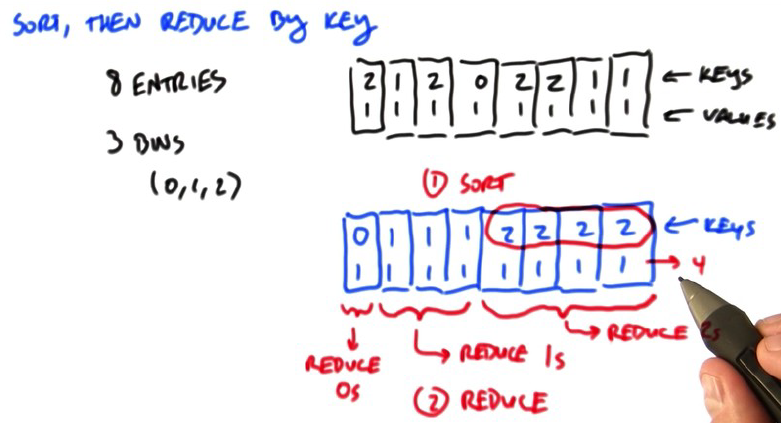 SORT, THEN REDUCE BY KEY
8 ENTRIES
3 BINS
(0,1,2)
2 1 2 0 2 2 1 1 ← KEYS
1 1 1 1 1 1 1 1 ← VALUES
① SORT
0 1 1 1 2 2 2 2 ← KEYS
1 1 1 1 1 1 1 1 → 4
REDUCE 0s
REDUCE 1s
REDUCE 2s
② REDUCE